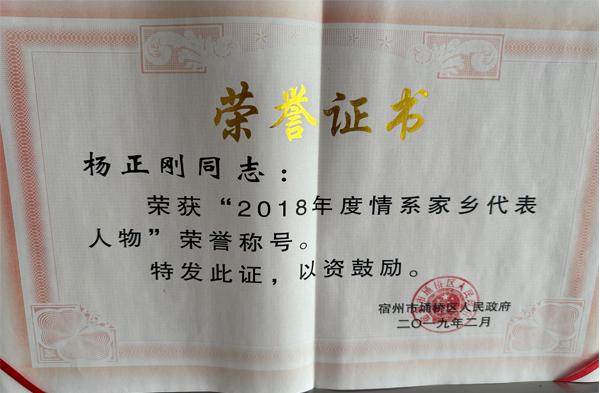 荣誉证书
杨正刚同志：
荣获“2018年度情系家乡代表
人物”荣誉称号。
特发此证，以资鼓励。
宿州市埇桥区人民政府
二〇一九年二月